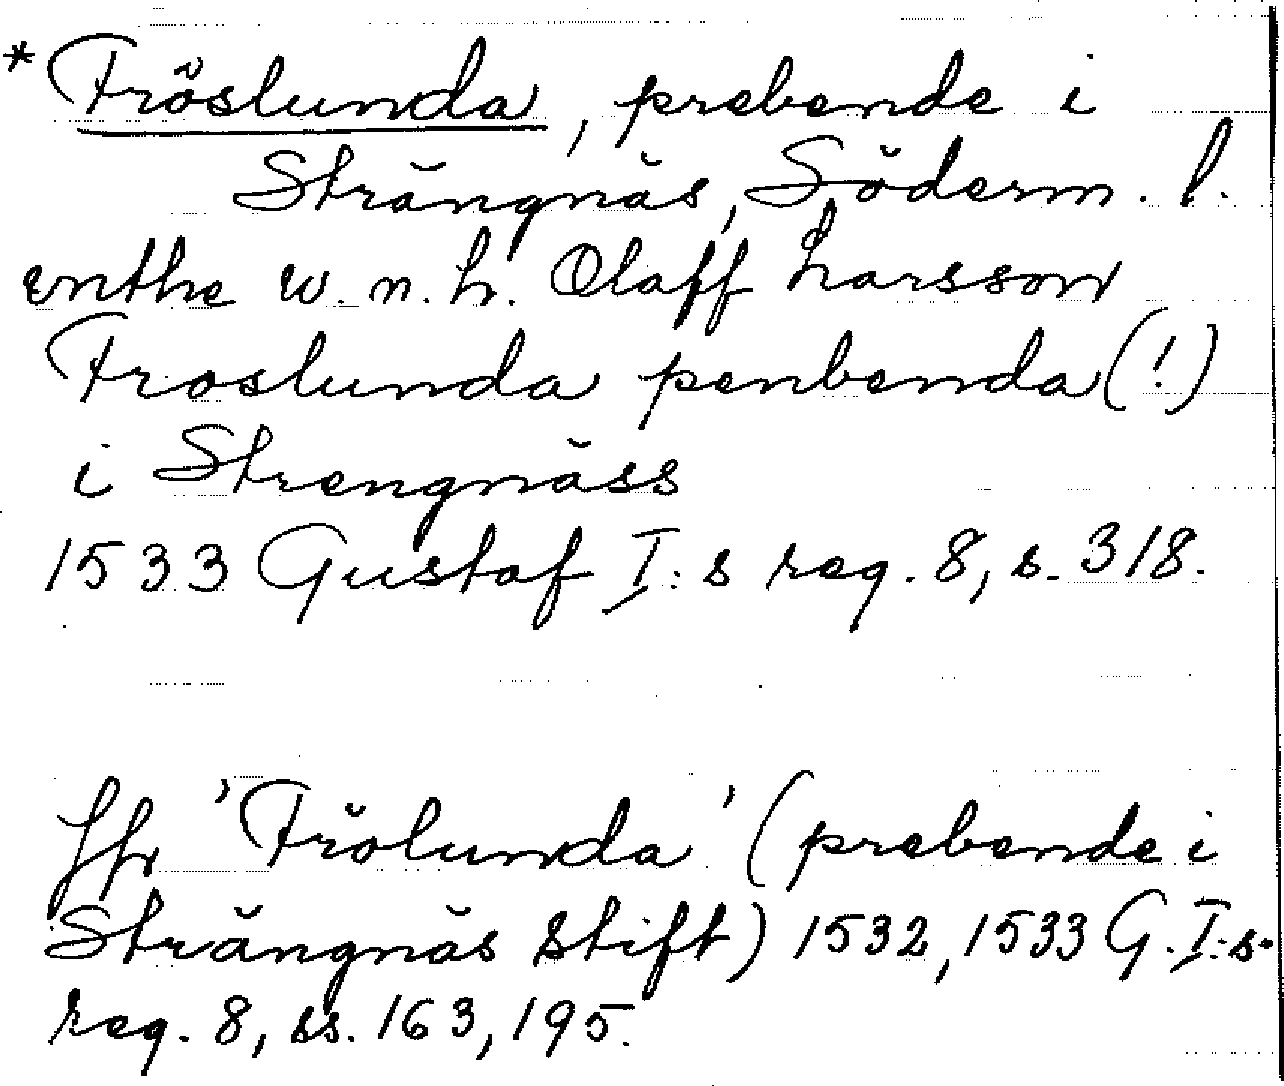 *Fröslunda, prebende i
Strängnäs, Söderm. l.
enthe w. n. h. Olaff Larsson
Froslunda penbenda(!)
i Strengnäss
1533 Gustaf I:s reg. 8, s. 318.
Jfr 'Frölunda' (prebende i
Strängnäs stift) 1532, 1533 G. I:s.
reg. 8, ss. 163, 195.